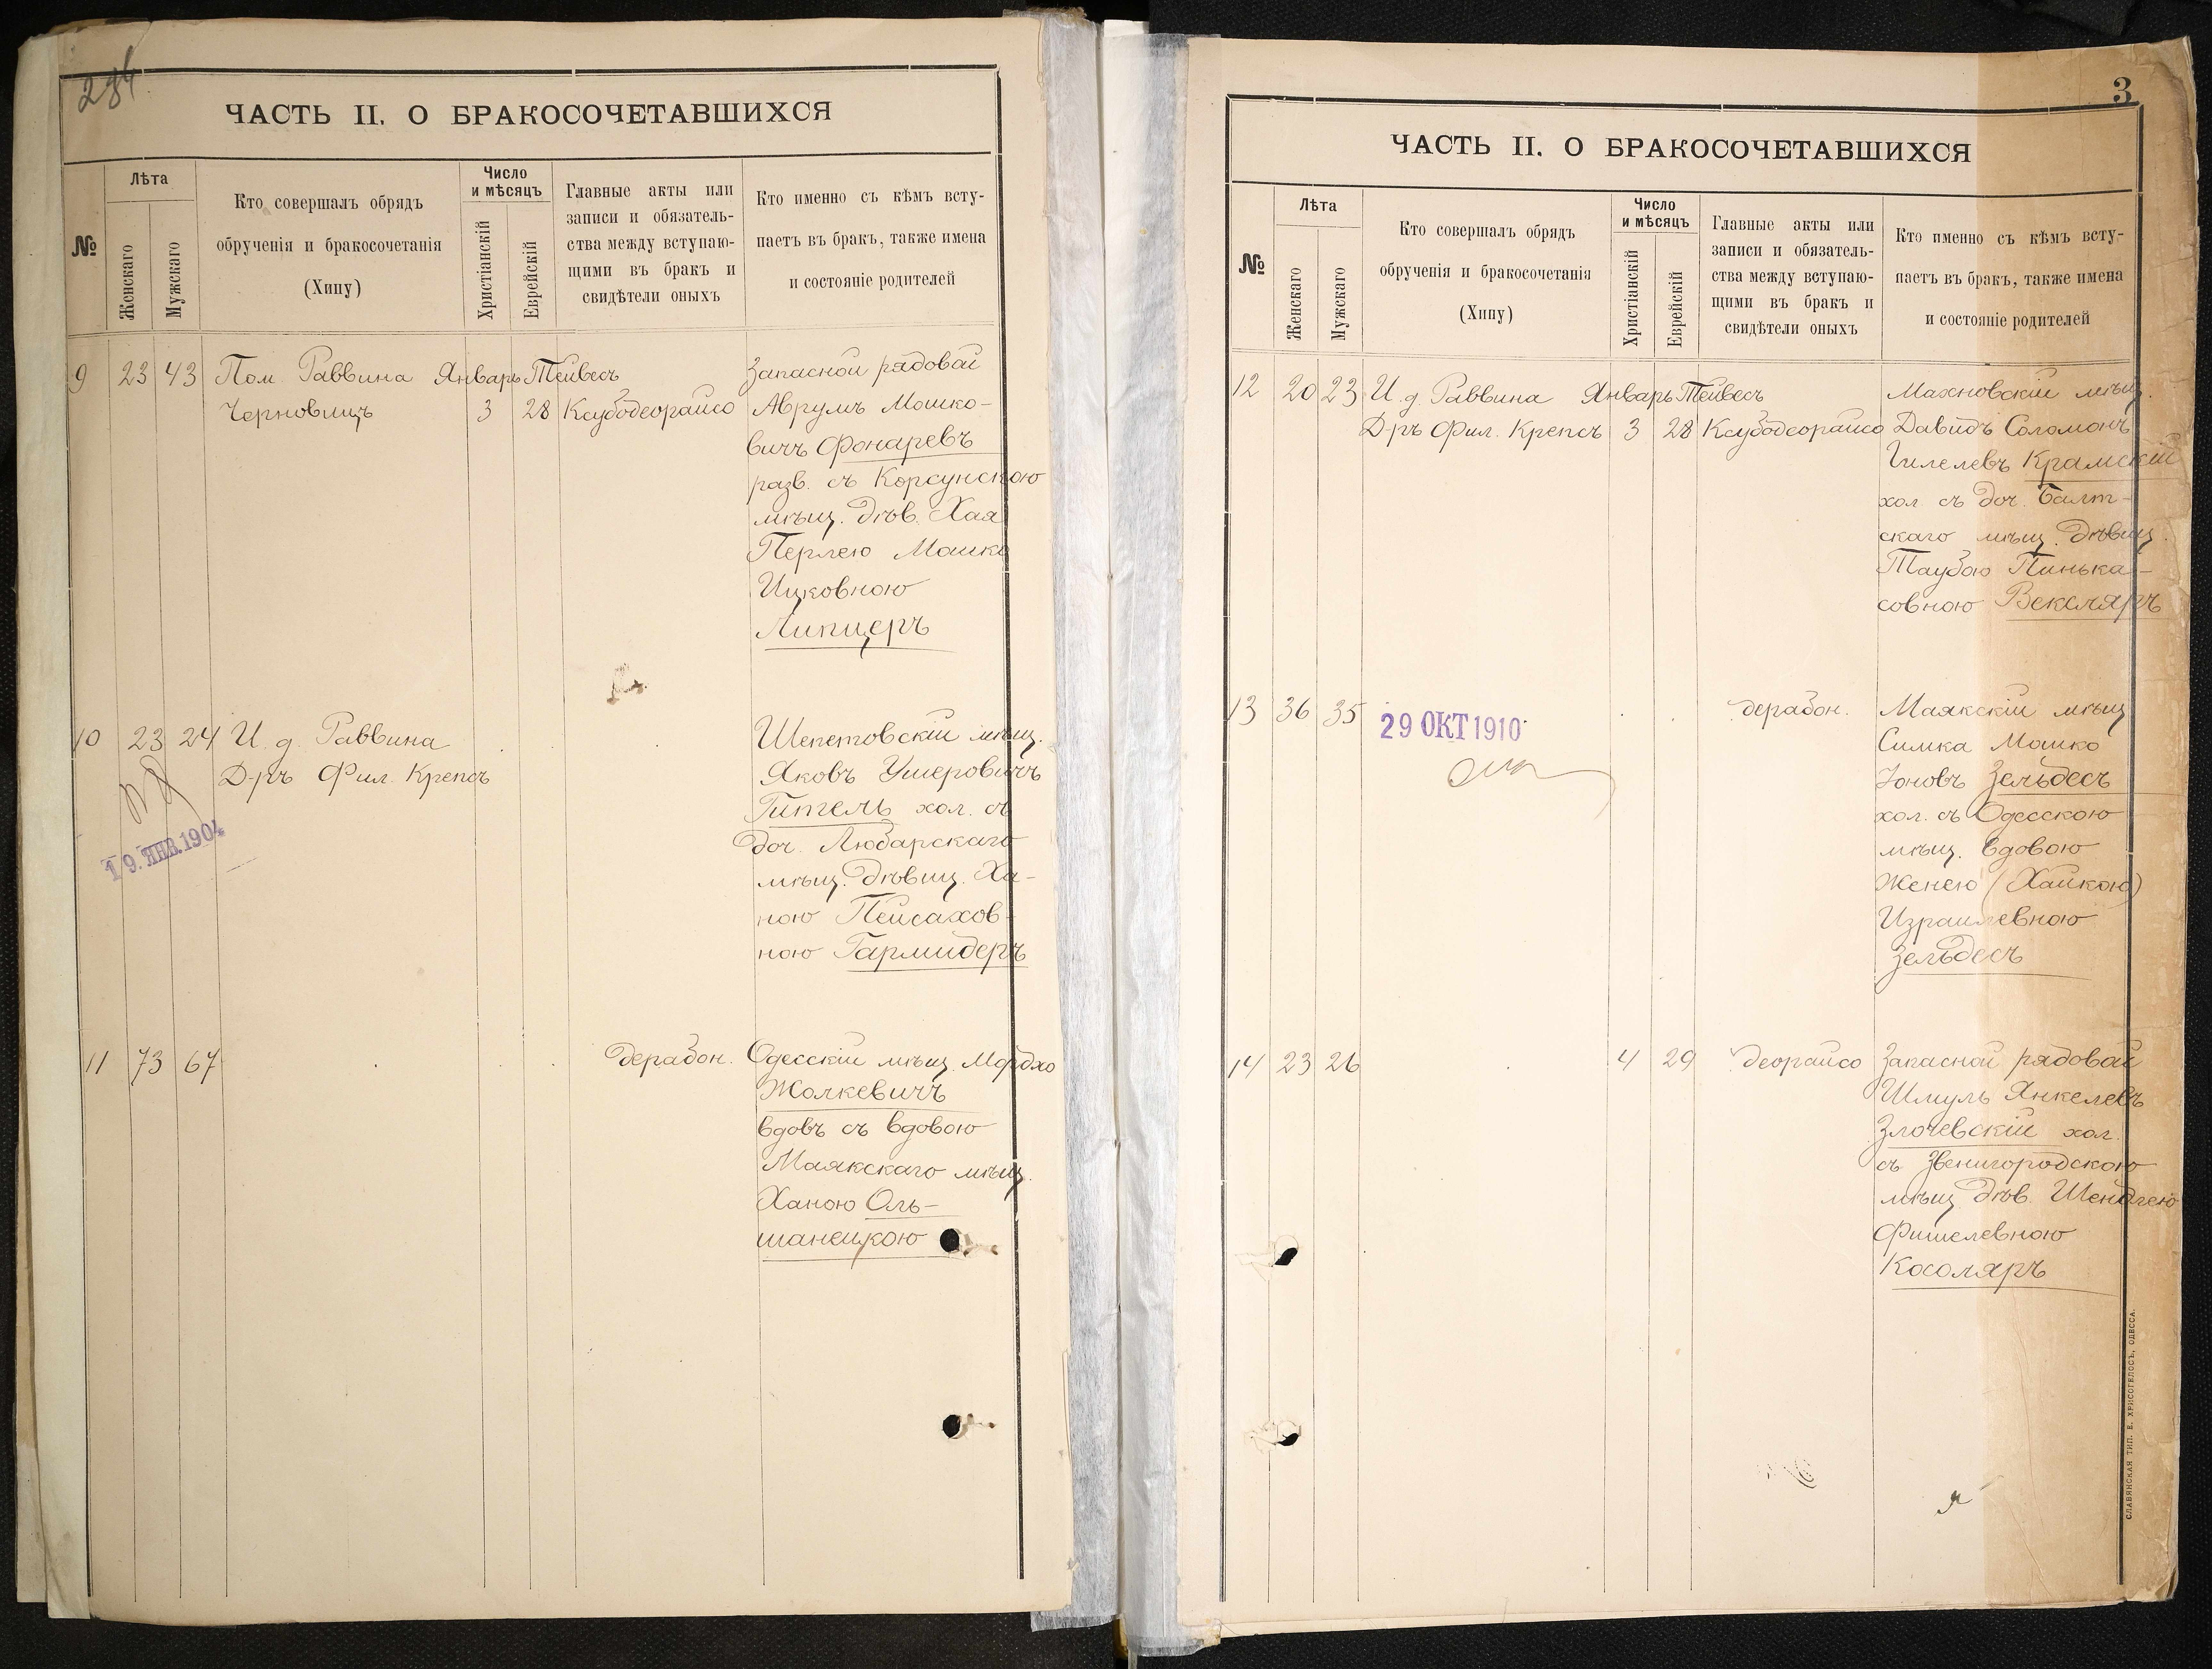 284
ЧАСТЬ II. О БРАКОСОЧЕТАВШИХСЯ
№
Лѣта
Женскаго
Мужскаго
Кто совершалъ обрядъ
обрученія и бракосочетанія
(Хипу)
Число
и мѣсяцъ
Христіанскій
Еврейскій
Главные акты или
записи и обязатель-
ства между вступаю-
щими въ бракъ и
свидѣтели оныхъ
Кто именно съ кѣмъ всту-
паетъ въ бракъ, также имена
и состояніе родителей
9 23 43 Пом. Раввина Январь Тейвесъ
Черновицъ 3 28 Ксубодеорайсо
Запасной рядовой
Аврумъ Мошко-
вичъ Фонаревъ
разв. съ Корсунскою
мѣщ. дѣв. Хая
Перлею Мошко
Ицковною
Липцеръ
10 23 24 И. д. Раввина
Д-ръ Фил. Крепсъ
19. ЯНВ. 1904
Шепетовскій мѣщ.
Яковъ Ушеровичъ
Гитель хол. съ
доч. Любарскаго
мѣщ. дѣвиц. Ха-
ною Пейсахов-
ною Гармидеръ
11 73 67 дерабон.
Одесскій мѣщ. Мордхо
Жолкевичъ
вдовъ съ вдовою
Маякскаго мѣщ.
Ханою Оль-
шанецкою
3
ЧАСТЬ II. О БРАКОСОЧЕТАВШИХСЯ
№
Лѣта
Женскаго
Мужскаго
Кто совершалъ обрядъ
обрученія и бракосочетанія
(Хипу)
Число
и мѣсяцъ
Христіанскій
Еврейскій
Главные акты или
записи и обязатель-
ства между вступаю-
щими въ бракъ и
свидѣтели оныхъ
Кто именно съ кѣмъ всту-
паетъ въ бракъ, также имена
и состояніе родителей
12 20 23 И. д. Раввина Январь Тейвесъ
Д-ръ Фил. Крепсъ 3 28 Ксубодеорайсо
Махновскій мѣщ.
Давидъ Соломонъ
Гилелевъ Крамскій
хол. съ доч. Балт-
скаго мѣщ. дѣвиц.
Таубою Пинька-
совною Вексляръ
13 36 35 дерабон.
29 ОКТ 1910
Маякскій мѣщ
Симка Мошко
Іоновъ Зельдесъ
хол. съ Одесскою
мѣщ. вдовою
Женею (Хайкою)
Израилевною
Зельдесъ
14 23 26 4 29 деорайсо
Запасной рядовой
Шмуль Янкелевъ
Злочевскій хол.
съ Звенигородскою
мѣщ. дѣв. Шендлею
Фишелевною
Косоляръ
СЛАВЯНСКАЯ ТИП. Е. ХРИСОГЕЛОСЪ, ОДЕССА.